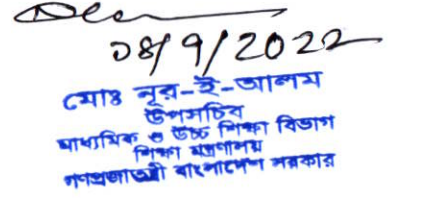 ০৪/9/2022
মোঃ নূর-ই-আলম
উপসচিব
মাধ্যমিক ও উচ্চ শিক্ষা বিভাগ
শিক্ষা মন্ত্রণালয়
গণপ্রজাতন্ত্রী বাংলাদেশ সরকার